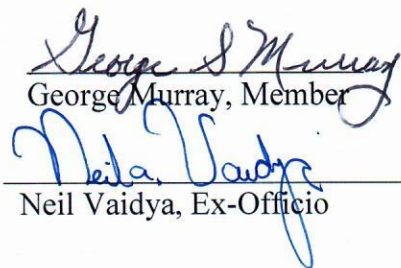 George S Murray
George Murray, Member
Neil a. Vaidya
Neil Vaidya, Ex-Officio